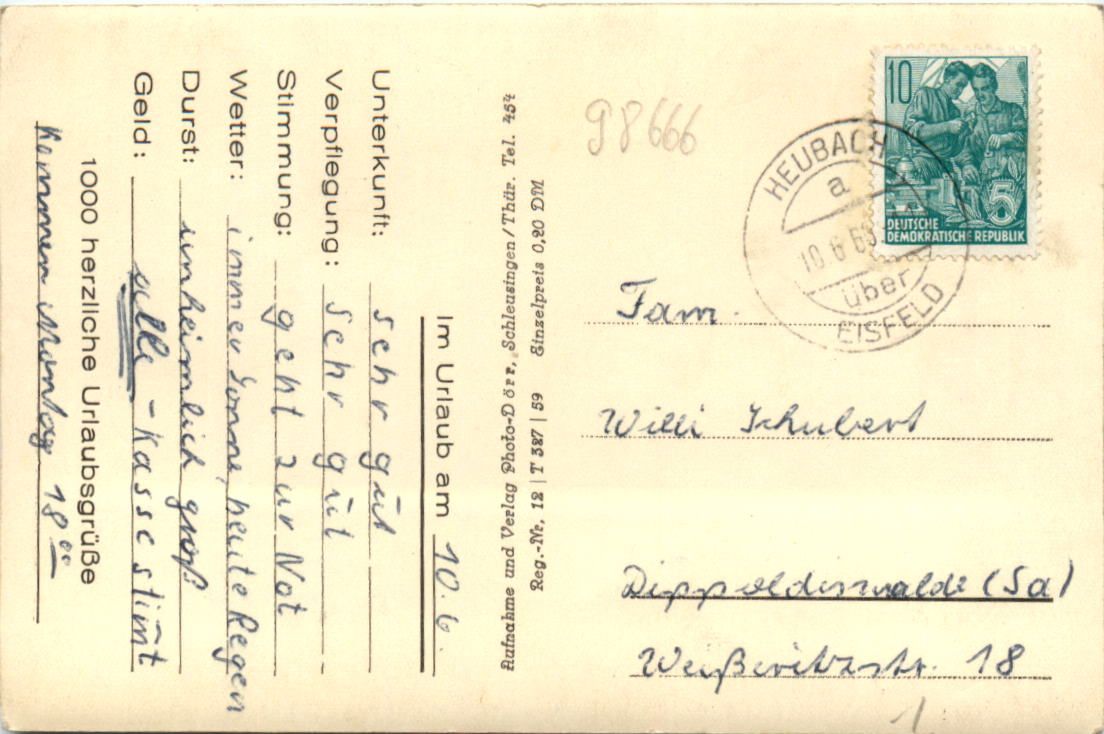 Im Urlaub am 10.6.
Unterkunft: sehr gut
Verpflegung: sehr gut
Stimmung: geht zur Not
Wetter: immer Sonne, heute Regen
Durst: unheimlich groß
Geld: alle - Kasse stimt
1000 herzliche Urlaubsgrüße
Kommen Montag 18⁰⁰
Aufnahme und Verlag Photo-Dörr, Schleusingen/Thür. Tel. 454
Reg.-Nr. 12 | T 387 | 59 Einzelpreis 0,20 DM
98666
10
5
DEUTSCHE
DEMOKRATISCHE REPUBLIK
HEUBACH
a
10.6.63
über
EISFELD
Fam.
Willi Schubert
Dippoldiswalde (Sa)
Weißeritzstr. 18
1